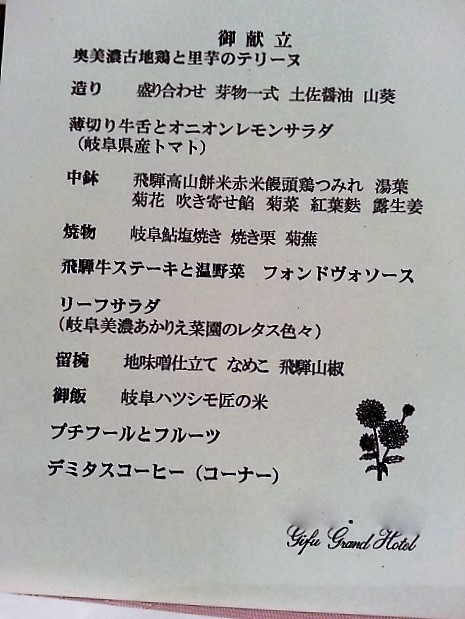 御献立
奥美濃古地鶏と里芋のテリーヌ
造り 盛り合わせ 芽物一式 土佐醤油 山葵
薄切り牛舌とオニオンレモンサラダ
（岐阜県産トマト）
中鉢 飛騨高山餅米赤米饅頭鶏つみれ 湯葉
菊花 吹き寄せ餡 菊菜 紅葉麩 露生姜
焼物 岐阜鮎塩焼き 焼き栗 菊蕪
飛騨牛ステーキと温野菜 フォンドヴォソース
リーフサラダ
（岐阜美濃あかりえ菜園のレタス色々）
留椀 地味噌仕立て なめこ 飛騨山椒
御飯 岐阜ハツシモ匠の米
プチフールとフルーツ
デミタスコーヒー（コーナー）
Gifu Grand Hotel